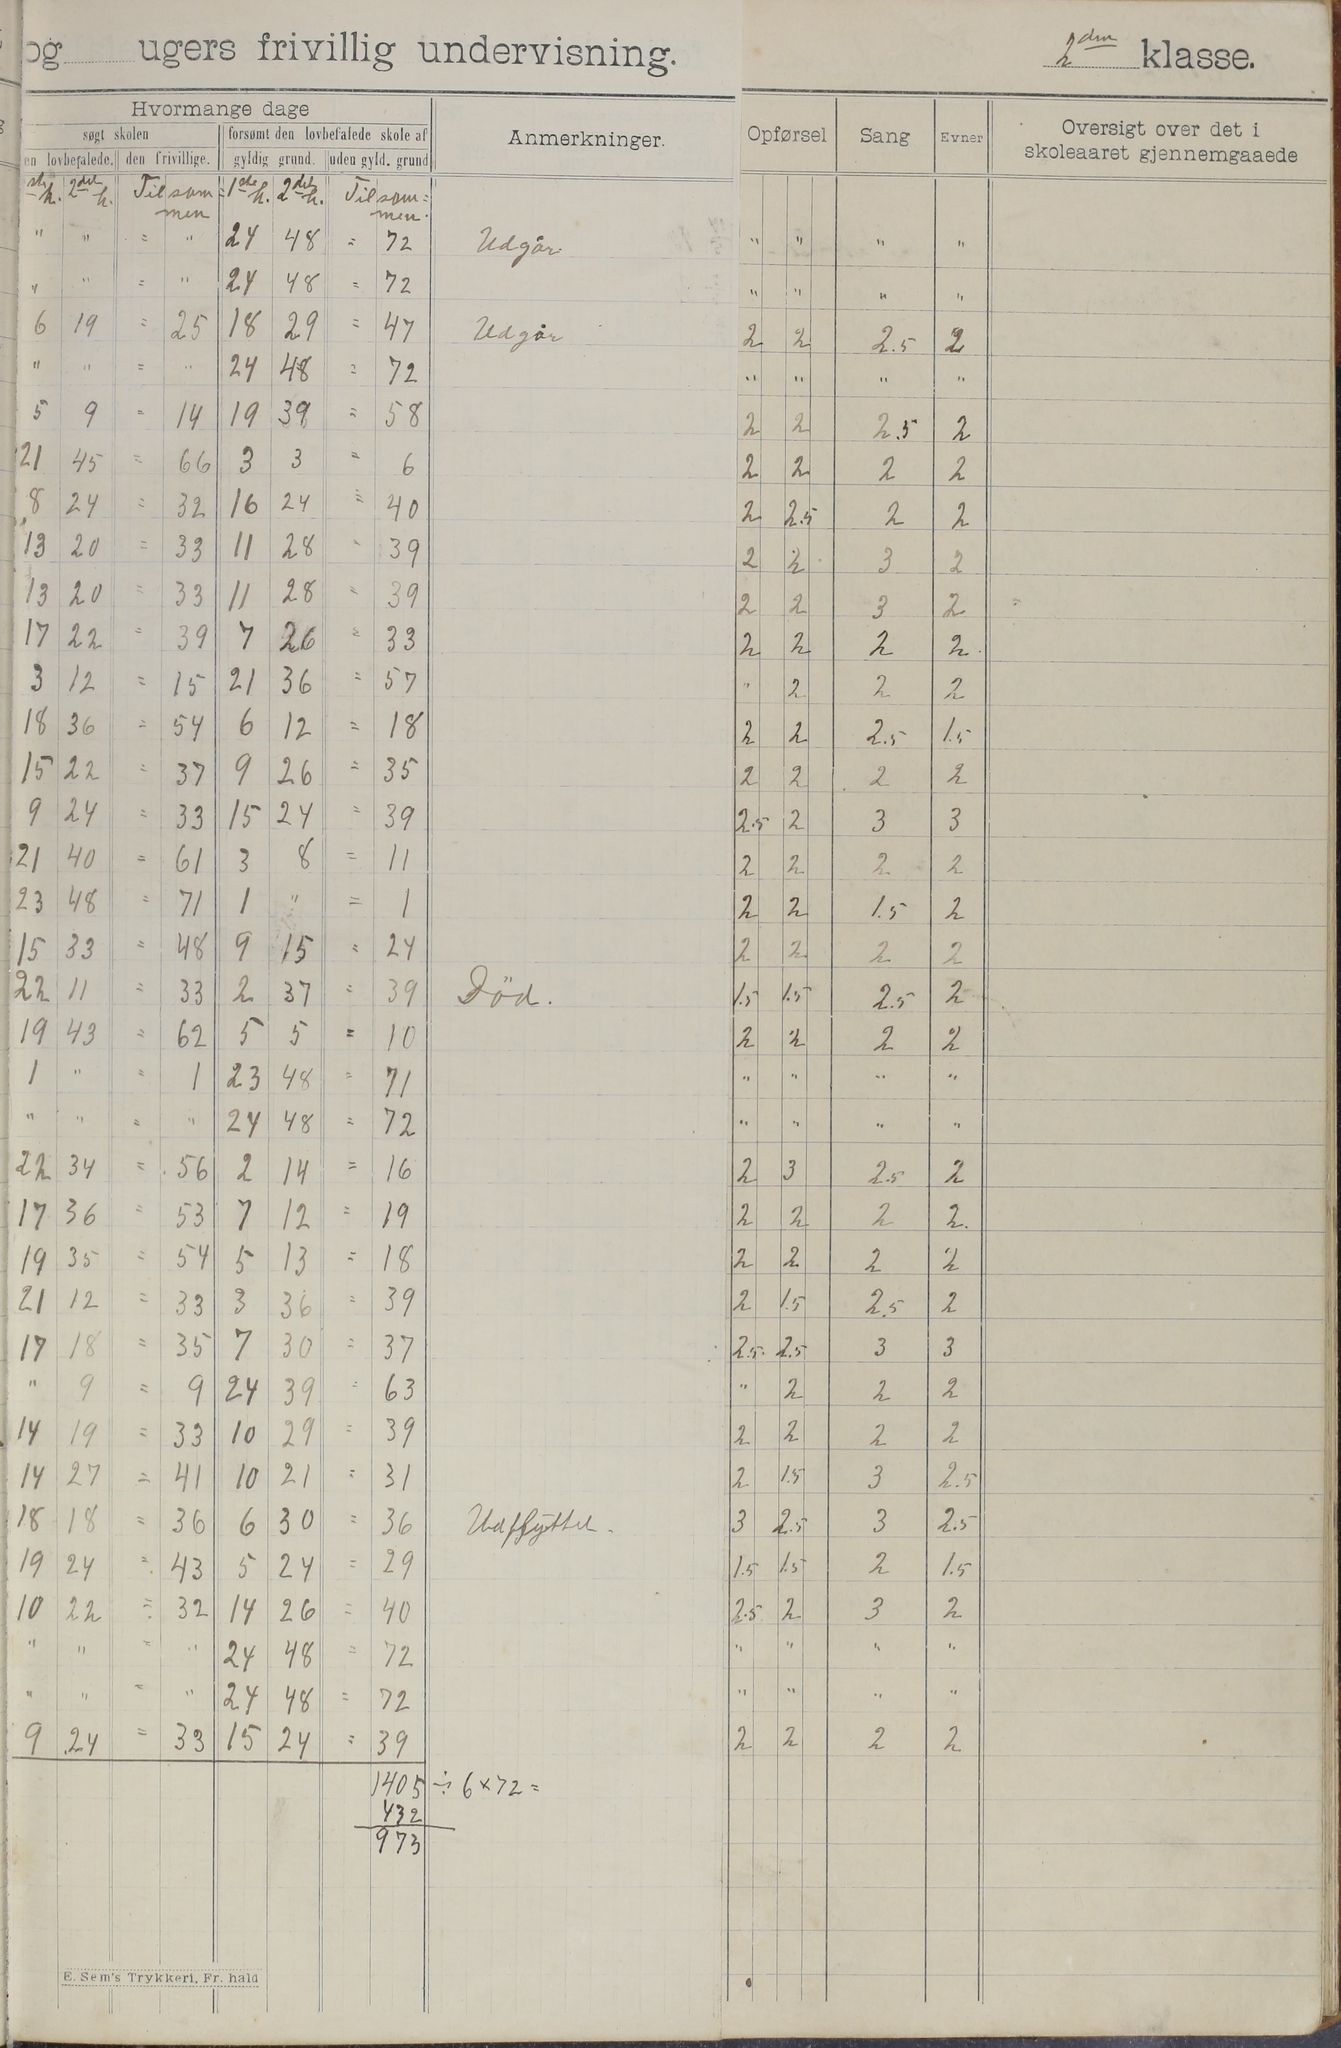 og ugers frivillig undervisning. 2den klasse.
Hvormange dage
søgt skolen forsømt den lovbefalede skole af Anmerkninger. Opførsel Sang Evner Oversigt over det i skoleaaret gjennemgaaede
en lovbefalede. den frivillige. gyldig grund. uden gyld. grund
ste h. 2det h. Tilsammen 1ste h. 2det h. Tilsam=men.
" " = " 24 48 = 72 Udgår " " " "
" " = " 24 48 = 72 " " " "
6 19 = 25 18 29 = 47 Udgår 2 2 2.5 2
" " = " 24 48 = 72 " " " "
5 9 = 14 19 39 = 58 2 2 2.5 2
21 45 = 66 3 3 = 6 2 2 2 2
8 24 = 32 16 24 = 40 2 2.5 2 2
13 20 = 33 11 28 = 39 2 2 3 2
13 20 = 33 11 28 = 39 2 2 3 2
17 22 = 39 7 26 = 33 2 2 2 2
3 12 = 15 21 36 = 57 " 2 2 2
18 36 = 54 6 12 = 18 2 2 2.5 1.5
15 22 = 37 9 26 = 35 2 2 2 2
9 24 = 33 15 24 = 39 2.5 2 3 3
21 40 = 61 3 8 = 11 2 2 2 2
23 48 = 71 1 " = 1 2 2 1.5 2
15 33 = 48 9 15 = 24 2 2 2 2
22 11 = 33 2 37 = 39 Död. 1.5 1.5 2.5 2
19 43 = 62 5 5 = 10 2 2 2 2
1 " = 1 23 48 = 71 " " " "
" " = " 24 48 = 72 " " " "
22 34 = 56 2 14 = 16 2 3 2.5 2
17 36 = 53 7 12 = 19 2 2 2 2.
19 35 = 54 5 13 = 18 2 2 2 2
21 12 = 33 3 36 = 39 2 1.5 2.5 2
17 18 = 35 7 30 = 37 2.5 2.5 3 3
" 9 = 9 24 39 = 63 " 2 2 2
14 19 = 33 10 29 = 39 2 2 2 2
14 27 = 41 10 21 = 31 2 1.5 3 2.5
18 18 = 36 6 30 = 36 Udflyttet. 3 2.5 3 2.5
19 24 = 43 5 24 = 29 1.5 1.5 2 1.5
10 22 = 32 14 26 = 40 2.5 2 3 2
" " = " 24 48 = 72 " " " "
" " = " 24 48 = 72 " " " "
9 24 = 33 15 24 = 39 2 2 2 2
1405 ÷ 6 × 72 =
432
973
E. Sem's Trykkeri, Fr. hald